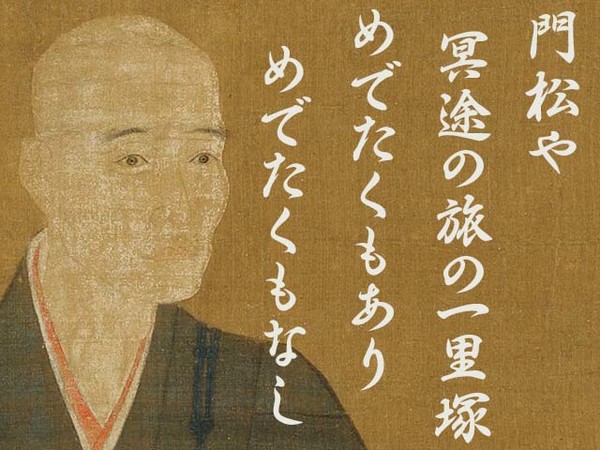 門松や
冥途の旅の一里塚
めでたくもあり
めでたくもなし